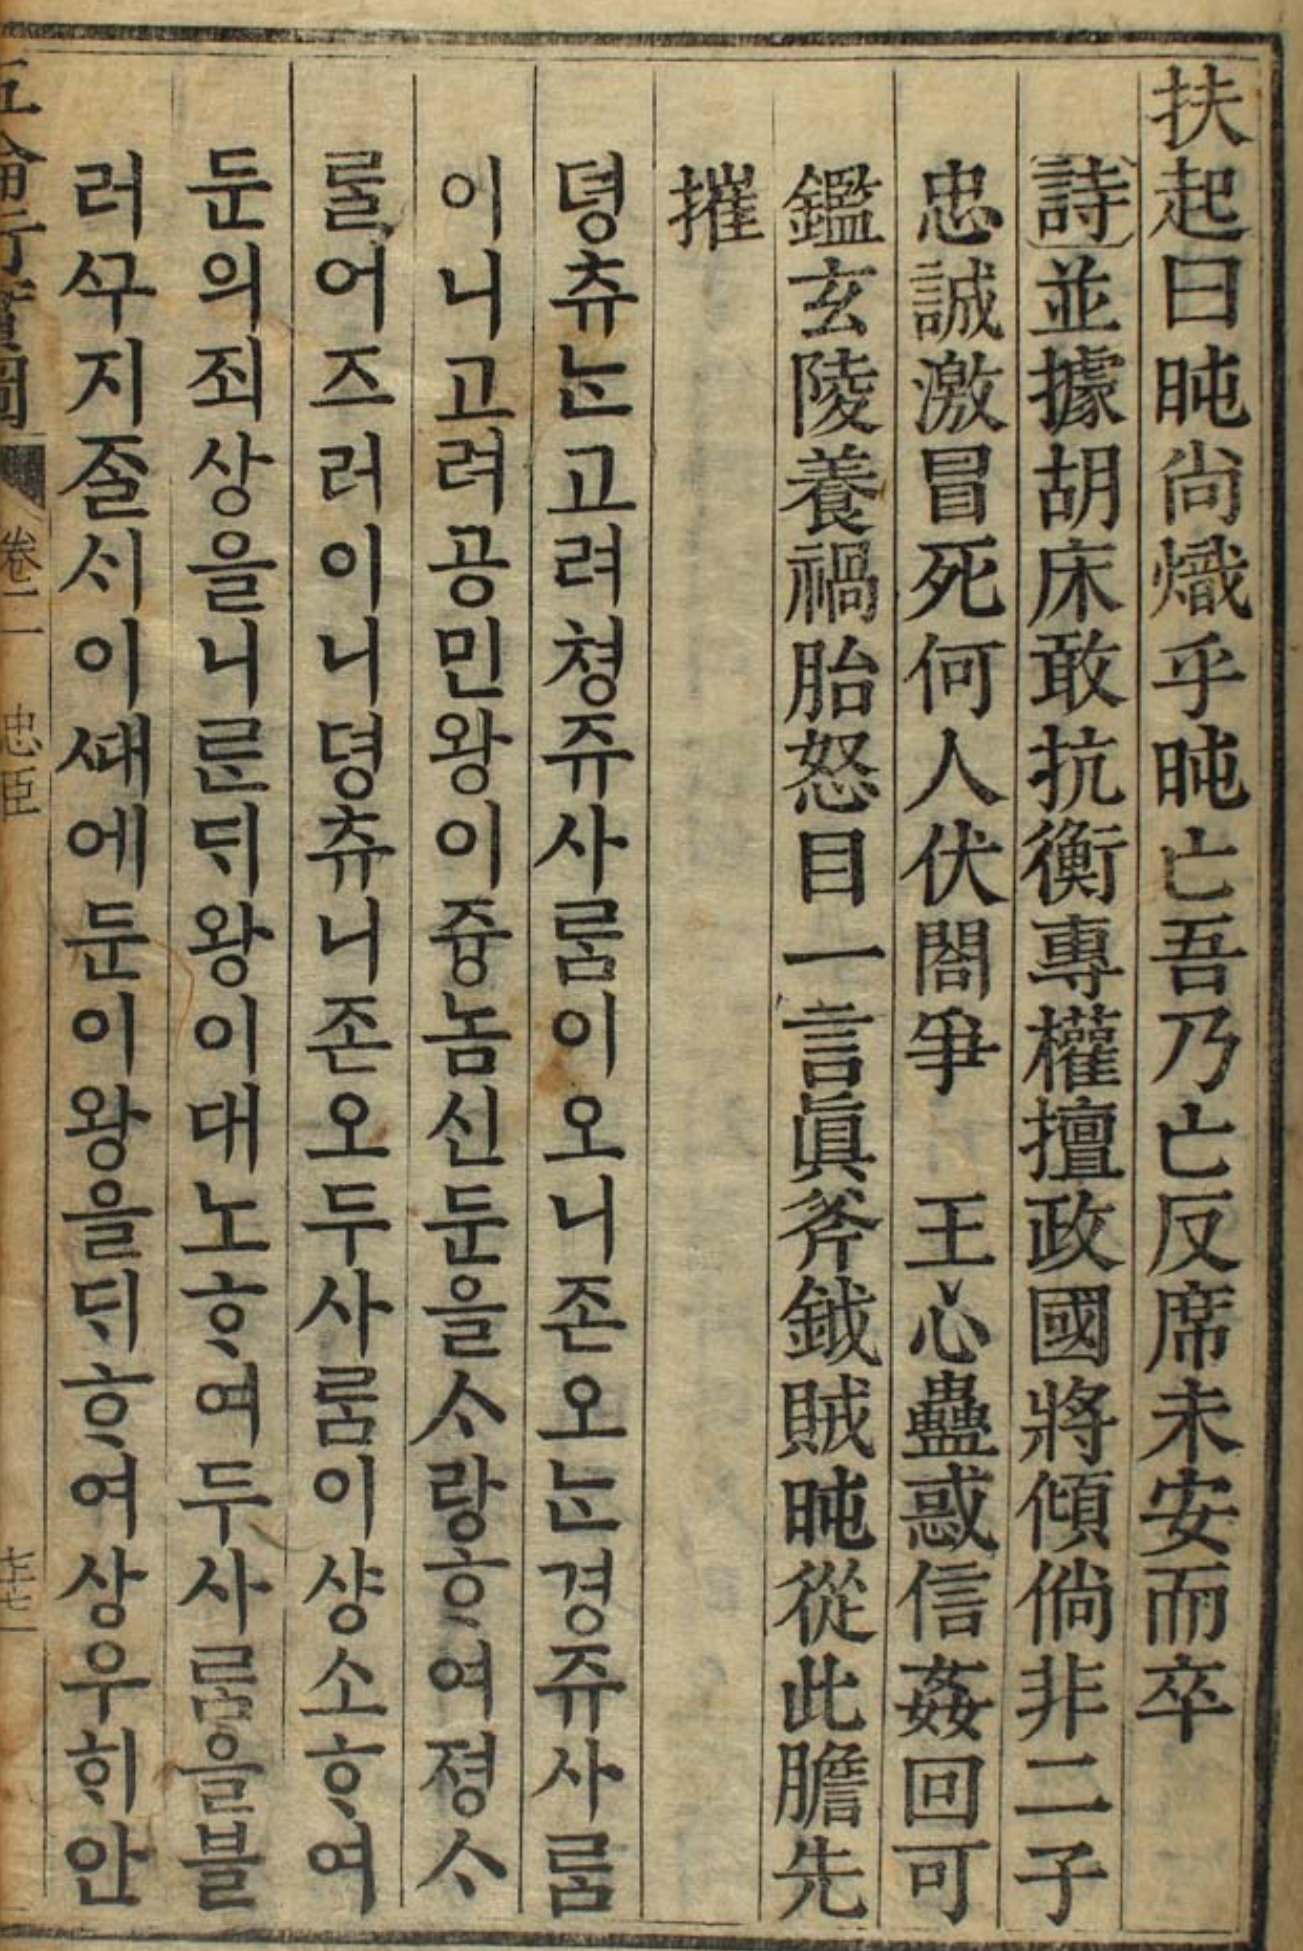 扶起曰旽尙熾乎旽亡吾乃亡反席未安而卒
詩 並據胡床敢抗衡專權擅政國將傾倘非二子
忠誠激冒死何人伏閤爭 王心蠱惑信姦回可
鑑玄陵養禍胎怒目一言眞斧鉞賊旽從此膽先
摧
뎡츄ᄂᆞᆫ고려쳥쥬사ᄅᆞᆷ이오니존오ᄂᆞᆫ경쥬사ᄅᆞᆷ
이니고려공민왕이즁놈신둔을ᄉᆞ랑ᄒᆞ여졍ᄉᆞ
ᄅᆞᆯ어즈러이니뎡츄니존오두사ᄅᆞᆷ이샹소ᄒᆞ여
둔의죄상을니ᄅᆞᆫᄃᆡ왕이대노ᄒᆞ여두사ᄅᆞᆷ을블
러ᄭᅮ지즐ᄉᆡ이ᄯᅢ에둔이왕을ᄃᆡᄒᆞ여상우ᄒᆡ안
五倫行實圖 卷二 忠臣